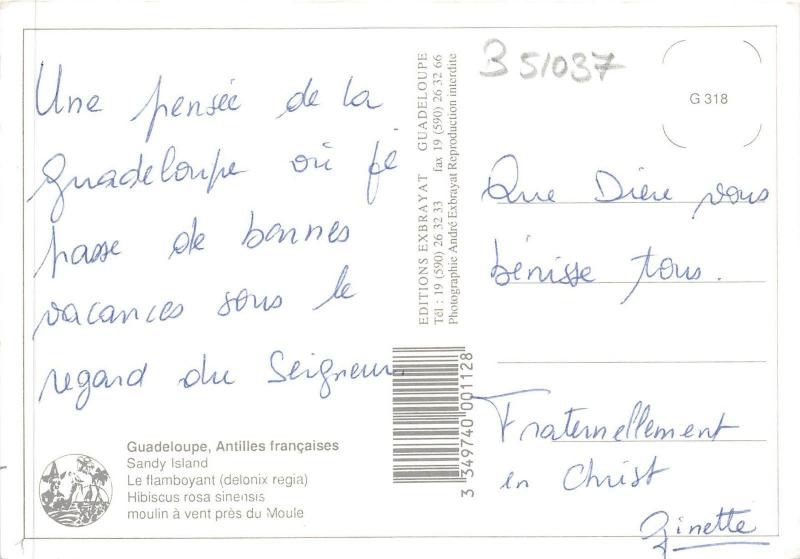 Une pensée de la
Guadeloupe où je
passe de bonnes
vacances sous le
regard du Seigneur.
Guadeloupe, Antilles françaises
Sandy Island
Le flamboyant (delonix regia)
Hibiscus rosa sinensis
moulin à vent près du Moule
EDITIONS EXBRAYAT GUADELOUPE
Tél : 19 (590) 26 32 33 fax 19 (590) 26 32 66
Photographie André Exbrayat Reproduction interdite
3 349740 001128
B 51037
G 318
Que Dieu vous
bénisse tous.
Fraternellement
en Christ
Ginette